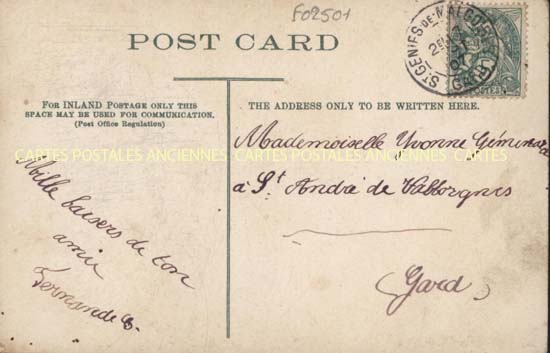 F02501
POST CARD
ST GENIES-DE-MALGOIRES
GARD
POSTES
FOR INLAND POSTAGE ONLY THIS
SPACE MAY BE USED FOR COMMUNICATION.
(Post Office Regulation)
THE ADDRESS ONLY TO BE WRITTEN HERE.
CARTES POSTALES ANCIENNES CARTES POSTALES ANCIENNES CARTES POSTALES ANCIENNES
Mille baisers de ton
amie
Fernande
Mademoiselle Yvonne
à St André de Valborgnes
(Gard)